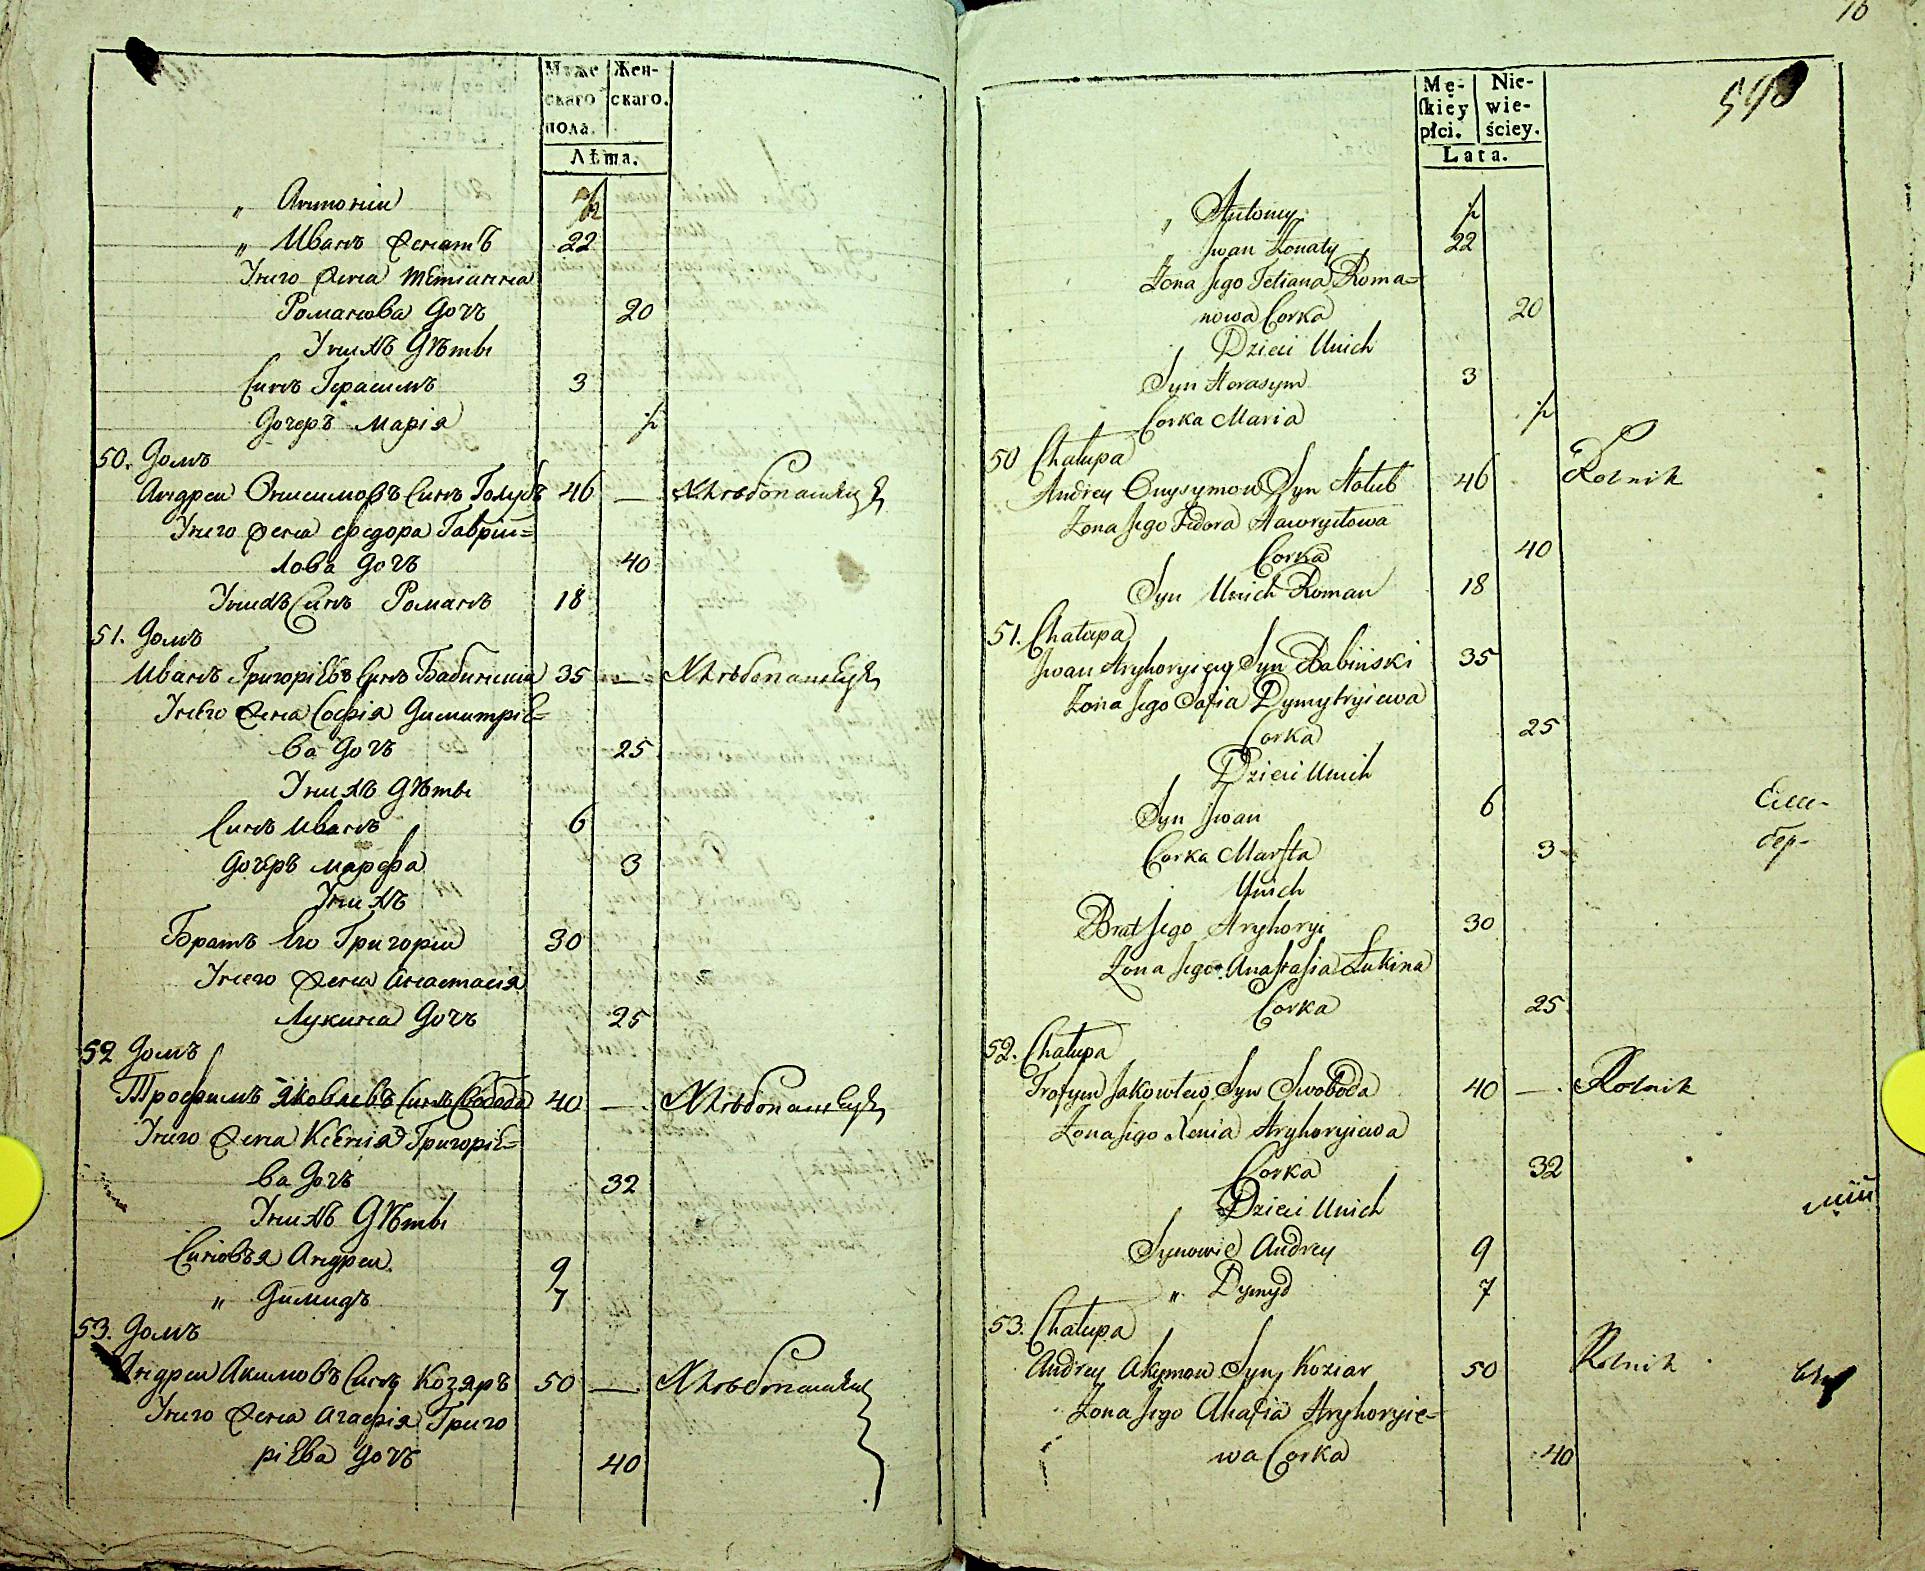 Муже Жен-
скаго скаго.
пола.
Лѣта.
„ Антоніи ½
„ Иванъ Женатъ 22
У него Жена Тетіанна
Романова Дочъ 20
У нихъ Дѣты
Синъ Герасимъ 3
Дочеръ Марія ½
50. Домъ
Андреи Онисимовъ Синъ Голубъ 46 — Хлѣбопашецъ
У него Жена Федора Гавріи=
лова Дочъ 40
У нихъ Синъ Романъ 18
51. Домъ
Иванъ Григоріевъ Синъ Бабинскіи 35 — Хлѣбопашецъ
У него Жена Софія Димитріе=
ва Дочъ 25
У нихъ Дѣты
Синъ Иванъ 6
Дочеръ Марфа 3
У нихъ
Братъ Его Григории 30
У него Жена Анастасія
Лукина Дочъ 25
52 Домъ
Трофимъ Яковлевъ Синъ Свобода 40 — Хлѣбопашецъ
У него Жена Ксенія Григоріе=
ва Дочъ 32
У нихъ Дѣты
Синовья Андреи 9
„ Димидъ 7
53. Домъ
Андреи Акимовъ Синъ Козяръ 50 — Хлѣбопашецъ
У него Жена Агафія Григо
ріева Дочъ 40
16
Mę- Nie-
skiey wie-
płci. ściey.
Lata.
„ Antoniy ½
„ Jwan Żonaty 22
Żona Jego Tetiana Roma=
nowa Corka 20
Dzieci Unich
Syn Harasym 3
Corka Maria ½
50 Chałupa
Andrey Onysymow Syn Hołub 46 Rolnik
Żona Jego Fedora Hawryłowa
Corka 40
Syn Unich Roman 18
51. Chałupa
Jwan Hryhoryiew Syn Babiński 35
Żona Jego Sofia Dymytryiewa
Corka 25
Dzieci Unich
Syn Jwan 6
Corka Marfta 3
Unich
Brat Jego Hryhoryi 30
Żona Jego Anastasia Łukina
Corka 25
52. Chałupa
Trofym Jakowlew Syn Swoboda 40 — Rolnik
Żona Jego Xenia Hryhoryiewa
Corka 32
Dzieci Unich
Synowie Andrey 9
„ Dymyd 7
53. Chałupa
Andrey Akymow Syn Koziar 50 Rolnik
Żona Jego Ahafia Hryhoryie=
wa Corka 40